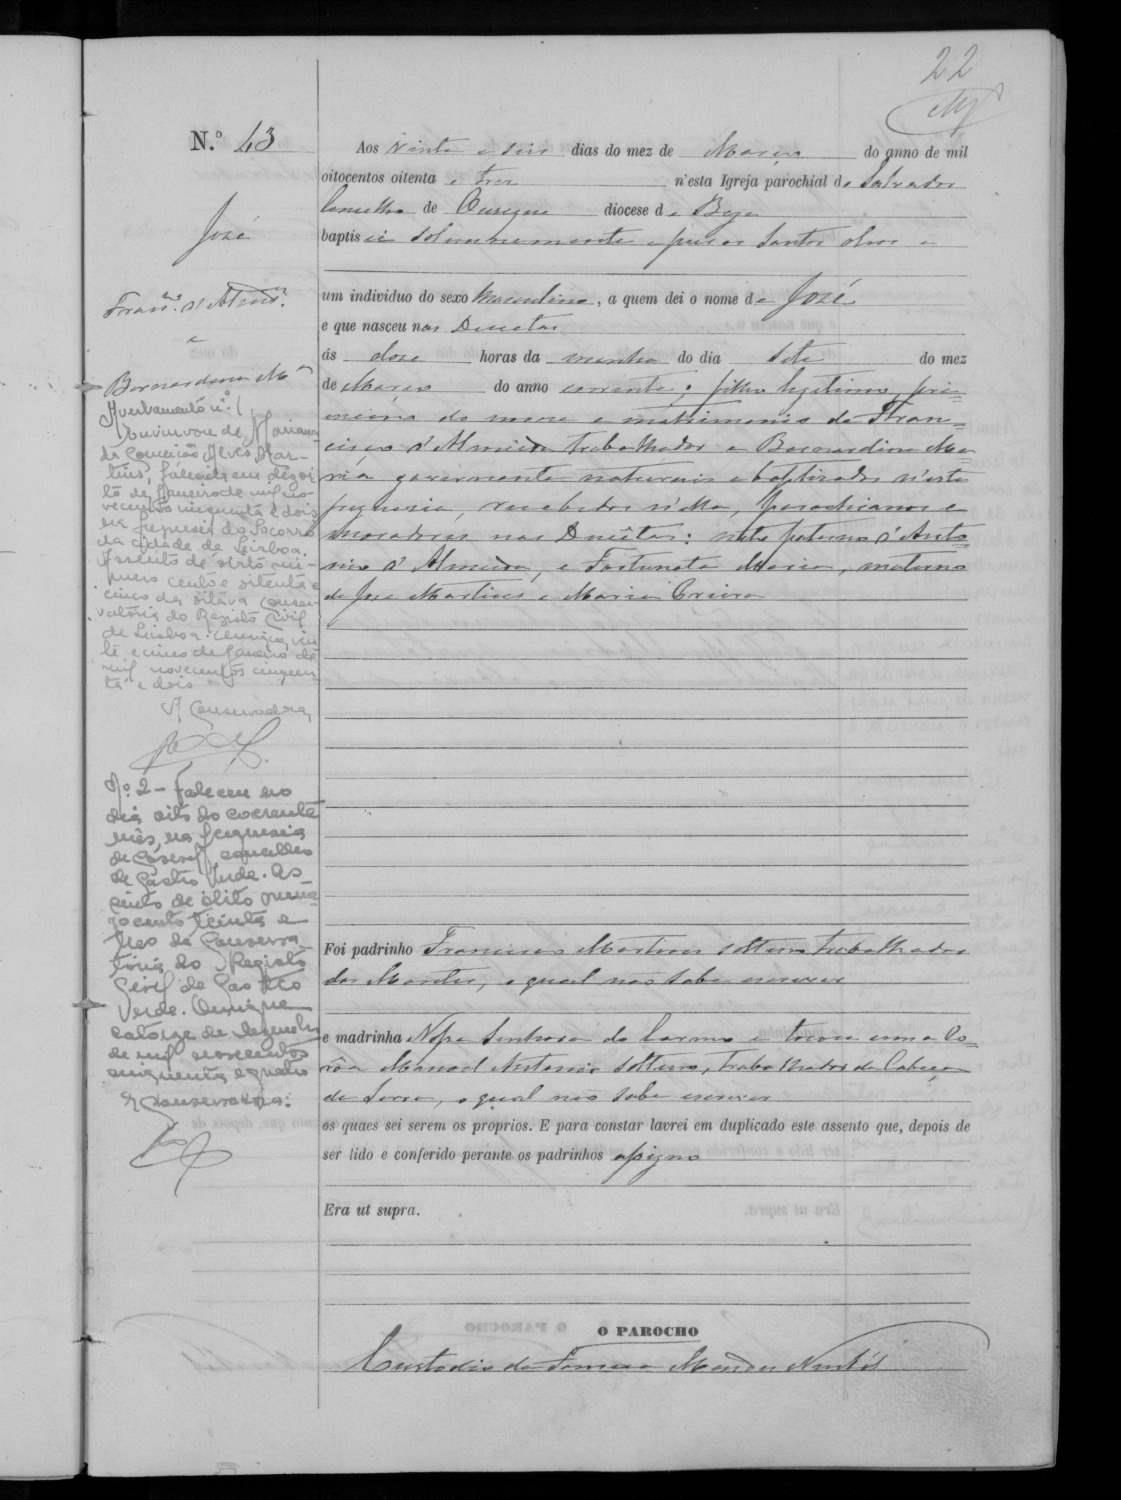 22
N.º 43
José
Fran.co d'Almd.a
e
Bernardina M.a
Averbamento n.º 1
Enviuvou de Mariana
da Conceição Alves Mar-
tins, falecida em dezoi-
to de Janeiro de mil no-
vecentos cinquenta e dois
na freguesia do Socorro
da cidade de Lisboa.
Assento de óbito nú-
mero cento e setenta e
cinco da oitava Conser-
vatória do Registo Civil
de Lisboa. Ourique, vin-
te e cinco de Janeiro de
mil novecentos cinquen-
ta e dois
A Conservadora,
N.º 2 - Faleceu no
dia oito do corrente
mês, na freguesia
de Casével, concelho
de Castro Verde. As-
sento de óbito núme-
ro cento trinta e
tres da Conserva-
tória do Registo
Civil de Castro
Verde. Ourique
catorze de Dezembro
de mil novecentos
cinquenta e quatro
A Conservadora:
Aos vinte e seis dias do mez de Março do anno de mil
oitocentos oitenta e tres n'esta Igreja parochial do Salvador
Concelho de Ourique diocese de Beja
baptisei solemnemente e puz os Santos oleos a
um individuo do sexo Masculino, a quem dei o nome de José
e que nasceu nas
ás doze horas da manhã do dia sete do mez
de Março do anno corrente; filho legitimo, pri=
meiro do nome e matrimonio de Fran=
cisco d'Almeida trabalhador e Bernardina Ma=
ria governante naturais e baptizados n'esta
freguesia, recebidos n'ella, parochianos e
moradores nas neto paterno d'Anto=
nio d'Almeida, e Fortunata Maria, materno
de Jose Martins e Maria
Foi padrinho Francisco Martins solteiro, trabalhador
dos Montes, o qual não sabe escrever
e madrinha Nossa Senhora do Carmo e tocou com a Co=
rôa Manoel Antonio solteiro, trabalhador da Cabeça
da Serra, o qual não sabe escrever
os quaes sei serem os proprios. E para constar lavrei em duplicado este assento que, depois de
ser lido e conferido perante os padrinhos assigno
Era ut supra.
O PAROCHO
Custodio da Fonseca Mendes